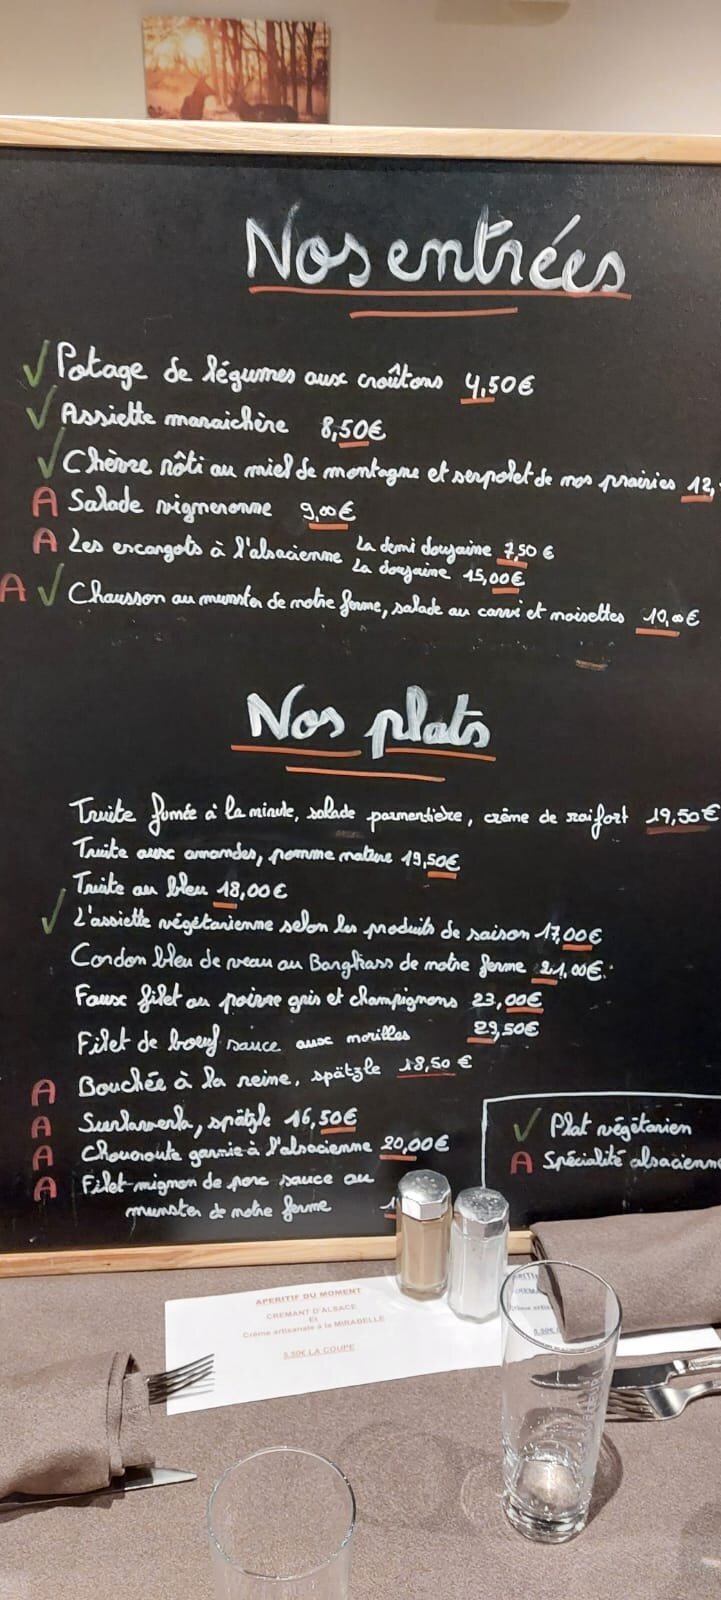 Nos entrées
Potage de légumes aux croûtons 4,50€
Assiette maraichère 8,50€
Chèvre rôti au miel de montagne et serpolet de nos prairies 12,
A Salade vigneronne 9,00€
A Les escargots à l'alsacienne La demi douzaine 7,50 €
La douzaine 15,00€
A Chausson au munster de notre ferme, salade au carvi et noisettes 10,00€
Nos plats
Truite fumée à la minute, salade parmentière, crème de raifort 19,50€
Truite aux amandes, pomme nature 19,50€
Truite au bleu 18,00€
L'assiette végétarienne selon les produits de saison 17,00€
Cordon bleu de veau au Bargkass de notre ferme 21,00€
Faux filet au poivre gris et champignons 23,00€
Filet de boeuf sauce aux morilles 29,50€
A Bouchée à la reine, spätzle 18,50 €
A Surlawerla, spätzle 16,50€
A Choucroute garnie à l'alsacienne 20,00€
A Filet-mignon de porc sauce au
munster de notre ferme 1
Plat végétarien
A Spécialité alsacienne
APERITIF DU MOMENT
CREMANT D'ALSACE
Et
Crème artisanale à la MIRABELLE
5,50€ LA COUPE